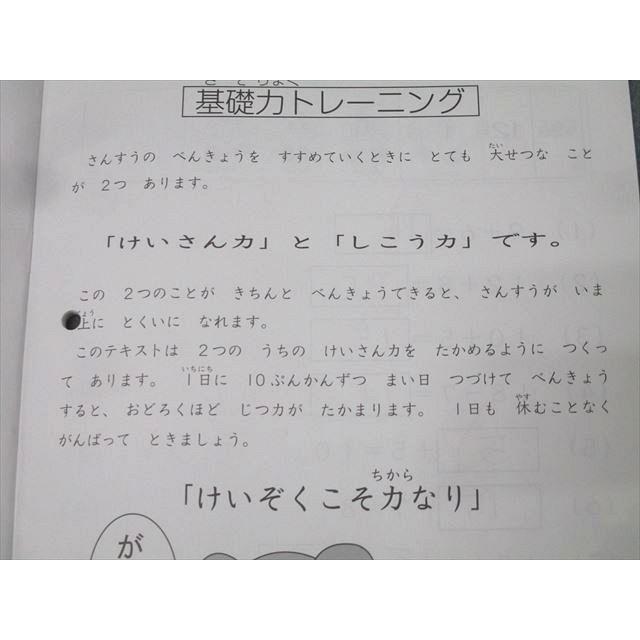 基礎力トレーニング
さんすうの べんきょうを すすめていくときに とても 大せつな こと
が 2つ あります。
「けいさん力」と「しこう力」です。
この 2つのことが きちんと べんきょうできると、さんすうが いま
上に とくいに なれます。
このテキストは 2つの うちの けいさん力を たかめるように つくっ
て あります。 1日に 10ぷんかんずつ まい日 つづけて べんきょう
すると、おどろくほど じつ力が たかまります。 1日も 休むことなく
がんばって ときましょう。
「けいぞくこそ力なり」
が